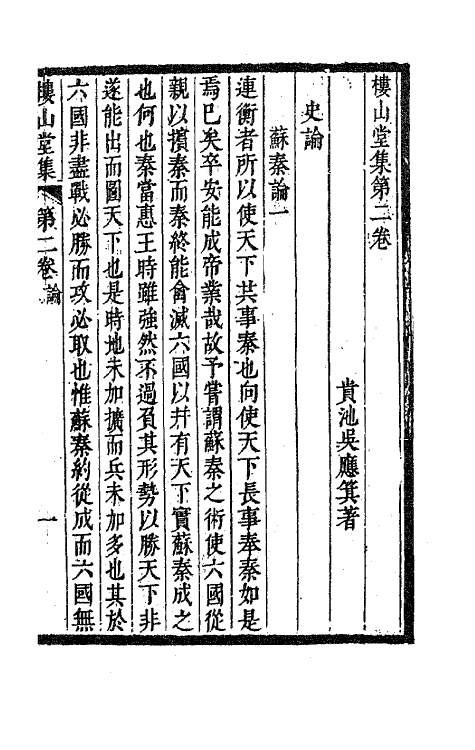 樓山堂集第二卷
貴池吳應箕著
史論
蘇秦論一
連衡者所以使天下共事秦也向使天下長事奉秦如是
焉已矣卒安能成帝業哉故予嘗謂蘇秦之術使六國從
親以擯秦而秦終能禽滅六國以并有天下實蘇秦成之
也何也秦當惠王時雖強然不過負其形勢以勝天下非
遂能出而圖天下也是時地未加擴而兵未加多也其於
六國非盡戰必勝而攻必取也惟蘇秦約從成而六國無
樓山堂集 第二卷 論 一